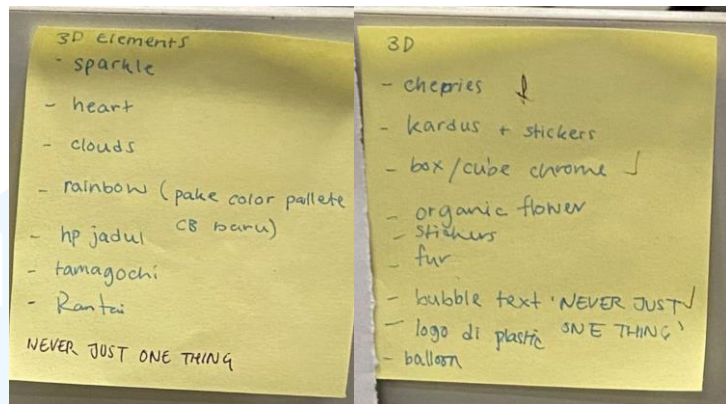 3D Elements
- sparkle
- heart
- clouds
- rainbow (pake color pallete
CB baru)
- hp jadul
- tamagochi
- Rantai
NEVER JUST ONE THING
3D
- cherries
- kardus + stickers
- box/cube chrome
- organic flower
- stickers
- fur
- bubble text 'NEVER JUST
ONE THING'
- logo di plastic
- balloon